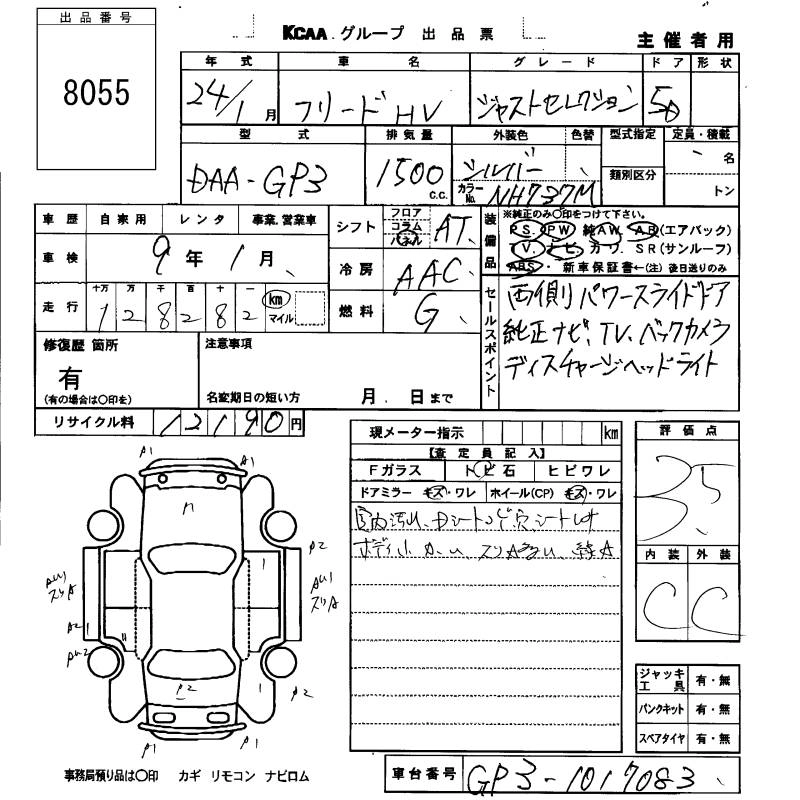 出品番号
8055
KCAA グループ 出品票
主催者用
年式 車名 グレード ドア 形状
24/1月 フリードHV ジャストセレクション 5D
型式 排気量 外装色 色替 型式指定 定員・積載
DAA-GP3 1500 c.c. シルバー 名
カラーNo. NH737M 類別区分 トン
車歴 自家用 レンタ 事業.営業車
車検 9年1月
走行 十万 万 千 百 十 一 km マイル
1 2 8 2 8 2
シフト フロア コラム パネル AT
冷房 AAC
燃料 G
装備品 ※純正のみ〇印をつけて下さい。
PS. PW 純AW. AB(エアバック)
TV. ナビ. カワ. SR(サンルーフ)
ABS・新車保証書←(注)後日送りのみ
セールスポイント
両側パワースライドドア
純正ナビ、TV、バックカメラ
ディスチャージヘッドライト
修復歴 箇所
有
(有の場合は〇印を)
注意事項
名変期日の短い方 月.日まで
リサイクル料 12190円
現メーター指示 km
【査定員記入】
Fガラス トビ石 ヒビワレ
ドアミラー キズ・ワレ ホイール(CP) キズ・ワレ
評価点
3.5
内装 外装
C C
ジャッキ工具 有・無
パンクキット 有・無
スペアタイヤ 有・無
A1 A1
P2
A2 1
P2 P2
A1 A1
事務局預り品は〇印 カギ リモコン ナビロム
車台番号 GP3-1017083